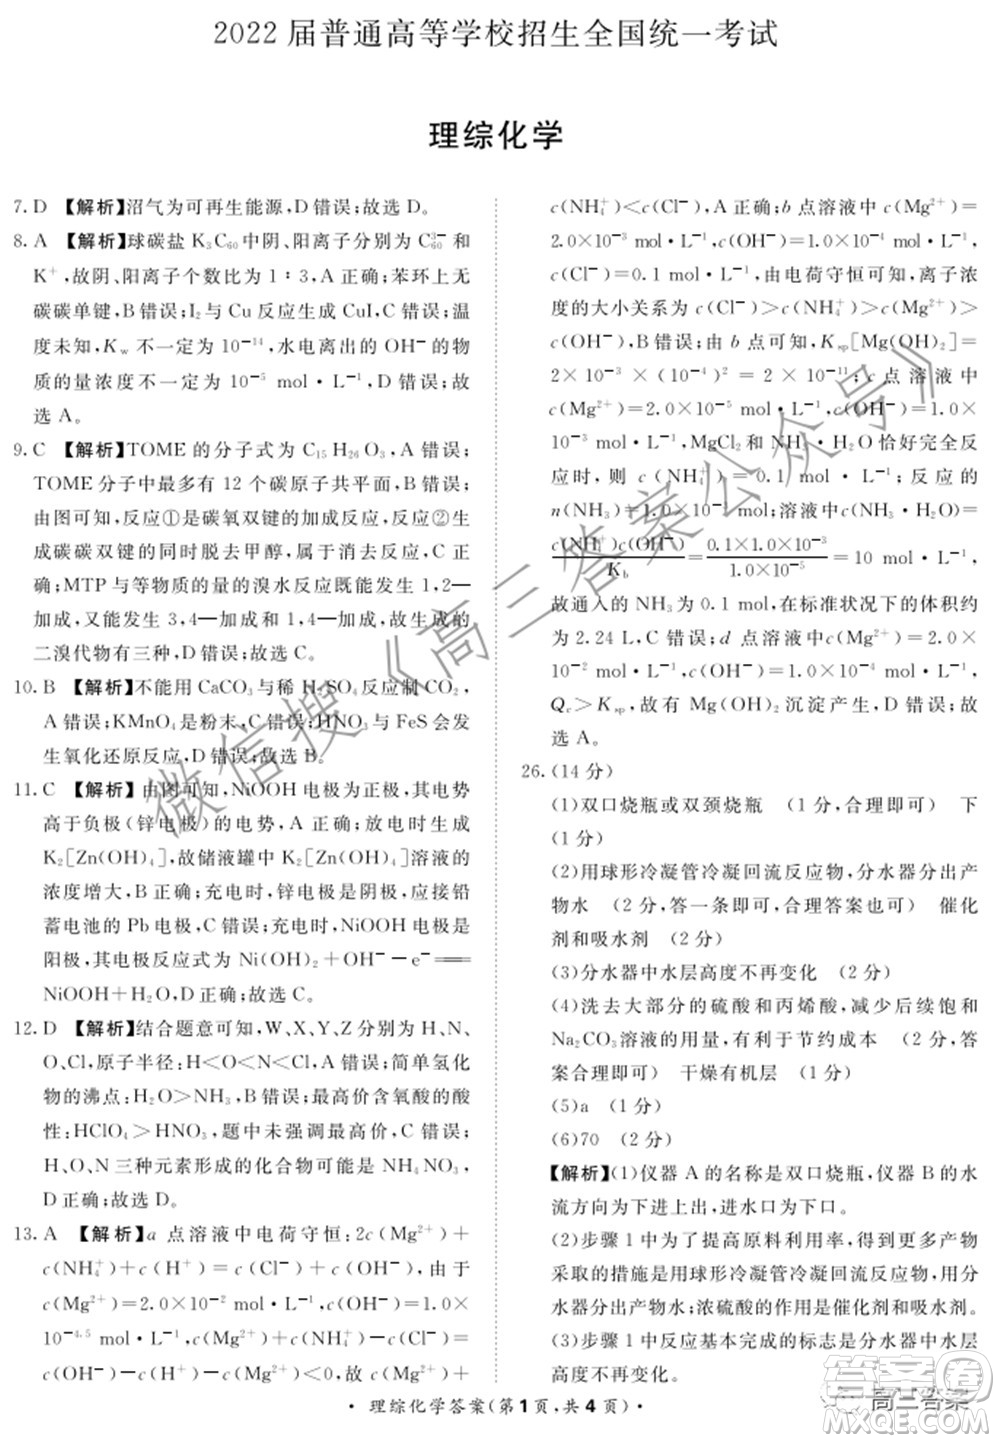 2022 届普通高等学校招生全国统一考试
理综化学
7. D 【解析】沼气为可再生能源,D错误;故选 D。
8. A 【解析】球碳盐 K₃C₆₀中阴、阳离子分别为 C₆₀³⁻和
K⁺,故阴、阳离子个数比为 1∶3,A 正确;苯环上无
碳碳单键,B 错误;I₂与 Cu 反应生成 CuI,C 错误;温
度未知,K_w 不一定为 10⁻¹⁴,水电离出的 OH⁻的物
质的量浓度不一定为 10⁻⁵ mol·L⁻¹,D 错误;故
选 A。
9. C 【解析】TOME 的分子式为 C₁₅H₂₆O₃,A 错误;
TOME 分子中最多有 12 个碳原子共平面,B 错误;
由图可知,反应①是碳氧双键的加成反应,反应②生成
碳碳双键的同时脱去甲醇,属于消去反应,D 错
误;MTP 与等物质的量的溴水反应既能发生 1,2—
加成,又能发生 3,4—加成和 1,4—加成,故生成的
二溴代物有三种,C 正确;故选 C。
10. B 【解析】不能用 CaCO₃与稀 H₂SO₄反应制 CO₂,
A 错误;KMnO₄是粉末,C 错误;HNO₃与 FeS 会发
生氧化还原反应,D 错误;故选 B。
11. C 【解析】由图可知,NiOOH 电极为正极,其电势
高于负极(锌电极)的电势,A 正确;放电时生成
K₂[Zn(OH)₄],故储液罐中 K₂[Zn(OH)₄]溶液的
浓度增大,B 正确;充电时,锌电极是阴极,应接铅
蓄电池的 Pb 电极,C 错误;充电时,NiOOH 电极是
阳极,其电极反应式为 Ni(OH)₂+OH⁻-e⁻══
NiOOH+H₂O,D 正确;故选 C。
12. D 【解析】结合题意可知,W、X、Y、Z 分别为 H、N、
O、Cl,原子半径:H<O<N,A 错误;简单氢化
物的沸点:H₂O>NH₃,B 错误;最高价含氧酸的酸
性:HClO₄>HNO₃,题中未强调最高价,C 错误;
H、O、N 三种元素形成的化合物可能是 NH₄NO₃,
D 正确;故选 D。
13. A 【解析】a 点溶液中电荷守恒:2c(Mg²⁺)+
c(NH₄⁺)+c(H⁺)=c(Cl⁻)+c(OH⁻),由于
c(Mg²⁺)=2.0×10⁻² mol·L⁻¹,c(OH⁻)=1.0×
10⁻⁴·⁵ mol·L⁻¹,则 c(Mg²⁺)+c(NH₄⁺)-c(Cl⁻)
=c(OH⁻)-c(H⁺)-c(Mg²⁺)<0,故 c(Mg²⁺)+
c(NH₄⁺)<c(Cl⁻),A 正确;b 点溶液中 c(Mg²⁺)=
2.0×10⁻³ mol·L⁻¹,c(OH⁻)=1.0×10⁻⁴ mol·L⁻¹,
c(Cl⁻)=0.1 mol·L⁻¹,由电荷守恒可知,离子浓
度的大小关系为 c(Cl⁻)>c(NH₄⁺)>c(Mg²⁺)>
c(OH⁻),B 错误;由 b 点可知,K_sp[Mg(OH)₂]=
2×10⁻³×(10⁻⁴)²=2×10⁻¹¹;c 点溶液中
c(Mg²⁺)=2.0×10⁻⁵ mol·L⁻¹,c(OH⁻)=1.0×
10⁻³ mol·L⁻¹,MgCl₂和 NH₃·H₂O 恰好完全反
应时,则 c(NH₄⁺)=0.1 mol·L⁻¹,反应的
n(NH₃)=0.1 mol;溶液中c(NH₃·H₂O)=
c(NH₄⁺)c(OH⁻)/K_b=0.1×1.0×10⁻³/1.0×10⁻⁵=10 mol·L⁻¹,
故通入的 NH₃为 0.1 mol,在标准状况下的体积约
为 2.24 L,C 错误;d 点溶液中 c(Mg²⁺)=2.0×
10⁻² mol·L⁻¹,c(OH⁻)=1.0×10⁻³ mol·L⁻¹,
Q_c>K_sp,故有 Mg(OH)₂沉淀产生,D 错误;故
选 A。
26.(14 分)
(1)双口烧瓶或双颈烧瓶 (1 分,合理即可) 下
(1 分)
(2)用球形冷凝管冷凝回流反应物,分水器分出产
物水 (2 分,答一条即可,合理答案也可) 催化
剂和吸水剂 (2 分)
(3)分水器中水层高度不再变化 (2 分)
(4)洗去大部分的硫酸和丙烯酸,减少后续饱和
Na₂CO₃溶液的用量,有利于节约成本 (2 分,答
案合理即可) 干燥有机层 (1 分)
(5)a (1 分)
(6)70 (2 分)
【解析】(1)仪器 A 的名称是双口烧瓶,仪器 B 的水
流方向为下进上出,进水口为下口。
(2)步骤 1 中为了提高原料利用率,得到更多产物
采取的措施是用球形冷凝管冷凝回流反应物,用分
水器分出产物水;浓硫酸的作用是催化剂和吸水剂。
(3)步骤 1 中反应基本完成的标志是分水器中水层
高度不再变化。
·理综化学答案(第 1 页,共 4 页)·
微信搜《高三答案公众号》
答案圈
高三答案